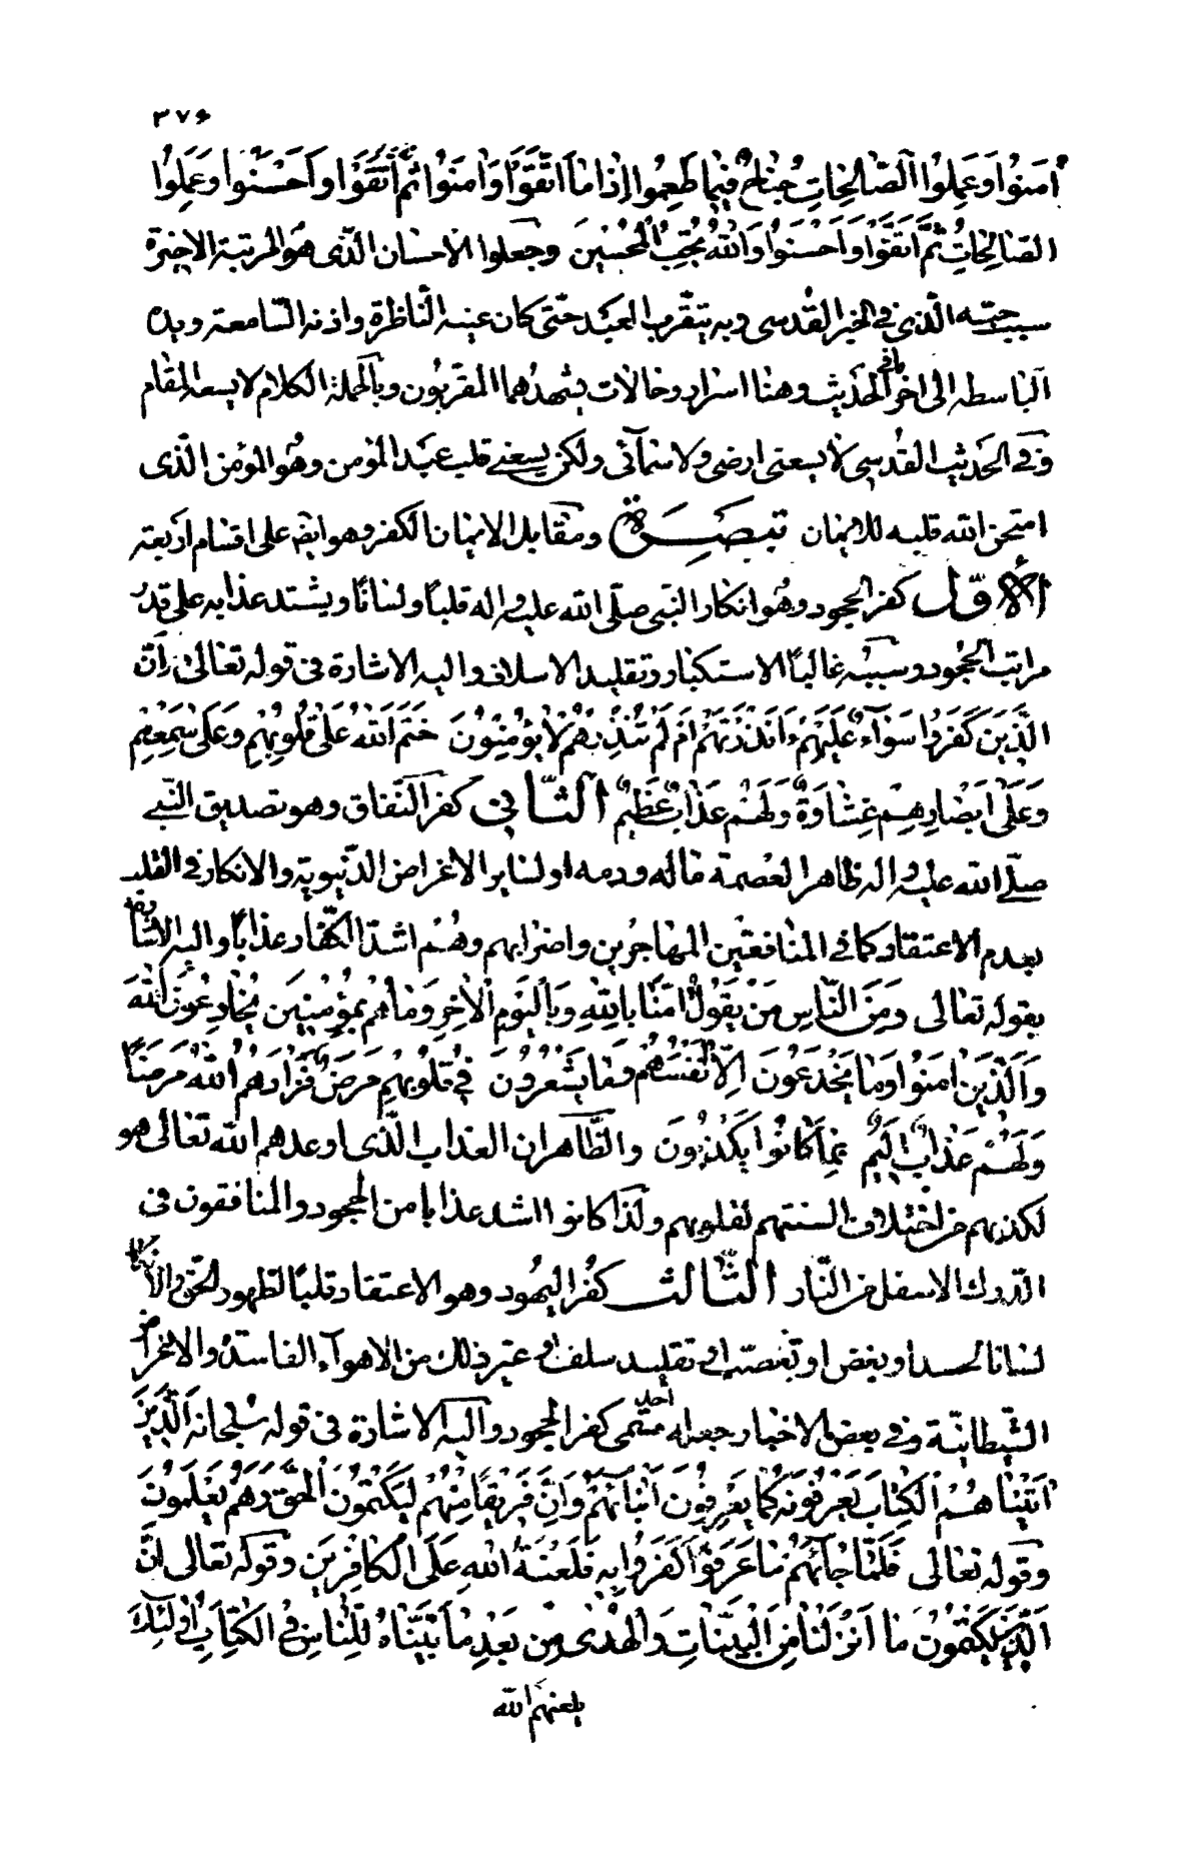 ٣٧۶
اٰمَنُوا وَعَمِلُوا الصّالِحاتِ جُناحٌ فيما طَعِمُوا اِذا مَا اتَّقَوْا وَاٰمَنُوا ثُمَّ اتَّقَوْا وَاَحْسَنُوا وَعَمِلُوا
الصّالِحاتِ ثُمَّ اتَّقَوْا وَاَحْسَنُوا وَاللهُ يُحِبُّ الْمُحْسِنينَ وجعلوا الاحسان الّذى هو المرتبة الاخيرة
سبب حبّه الّذى فى الخبر القدسى وبه يتقرّب العبد حتّى كان عينه النّاظرة واذنه السّامعة ويده
الباسطه الى اخر ما فى الحديث وهنا اسرار وحالات يشهدهما المقرّبون وبالجملة الكلام لا يسعه المقام
وفى الحديث القدسى لا يسعنى ارضى ولا سمآئى ولكن يسعنى قلب عبد المؤمن وهو المؤمن الّذى
امتحن الله قلبه للايمان تبصرة ومقابل الايمان الكفر وهو ايضا على اقسام اربعة
الاوّل كفر الجحود وهو انكار النّبى صلّى الله عليه واله قلباً ولساناً ويشتد عذابه على قدر
مراتب الجحود وسببه غالباً الاستكبار وتقليد الاسلاف واليه الاشارة فى قوله تعالى اِنَّ
الَّذينَ كَفَرُوا سَوآءٌ عَلَيْهِمْ ءَاَنْذَرْتَهُمْ اَمْ لَمْ تُنْذِرْهُمْ لا يُؤْمِنُونَ خَتَمَ اللهُ عَلى قُلُوبِهِمْ وَعَلى سَمْعِهِمْ
وَعَلى اَبْصارِهِمْ غِشاوَةٌ وَلَهُمْ عَذابٌ عَظيمٌ الثّانى كفر النّفاق وهو تصديق النّبى
صلّى الله عليه واله ظاهرا لعصمة ماله ودمه او لساير الاغراض الدّنيوية والانكار فى القلب
بعدم الاعتقاد كما فى المنافقين المهاجرين واضرابهم وهم اشدّ الكفّار عذاباً واليه الاشارة
بقوله تعالى وَمِنَ النّاسِ مَنْ يَقُولُ اٰمَنّا بِاللهِ وَبِالْيَوْمِ الْاٰخِرِ وَما هُمْ بِمُؤْمِنينَ يُخادِعُونَ اللهَ
وَالَّذينَ اٰمَنُوا وَما يَخْدَعُونَ اِلّا اَنْفُسَهُمْ وَما يَشْعُرُونَ فى قُلُوبِهِمْ مَرَضٌ فَزادَهُمُ اللهُ مَرَضًا
وَلَهُمْ عَذابٌ اَليمٌ بِما كانُوا يَكْذِبُونَ والظّاهر ان العذاب الّذى اوعدهم الله تعالى هو
لكذبهم من اختلاف السنتهم لقلوبهم ولذا كانوا اشد عذابا من الجحود والمنافقون فى
الدّرك الاسفل من النّار الثّالث كفر اليهود وهو الاعتقاد قلبًا لظهور الحق والانكار
لسانا لحسد او بغض او تعصّب او تقليد سلف او غير ذلك من الاهوآء الفاسدة والاغراض
الشّيطانيّة وفى بعض الاخبار جعله احد قسمى كفر الجحود واليه الاشارة فى قوله سُبحانه اَلَّذينَ
اٰتَيْناهُمُ الْكِتابَ يَعْرِفُونَهُ كَما يَعْرِفُونَ اَبْنآئَهُمْ وَاِنَّ فَريقًا مِنْهُمْ لَيَكْتُمُونَ الْحَقَّ وَهُمْ يَعْلَمُونَ
وقوله تعالى فَلَمّا جآئَهُمْ ما عَرَفُوا كَفَرُوا بِهِ فَلَعْنَةُ اللهِ عَلَى الْكافِرينَ وقوله تعالى اِنَّ
الَّذينَ يَكْتُمُونَ ما اَنْزَلْنا مِنَ الْبَيِّناتِ وَالْهُدى مِنْ بَعْدِ ما بَيَّنّاهُ لِلنّاسِ فِى الْكِتابِ اُولئِكَ
يلعنهم الله